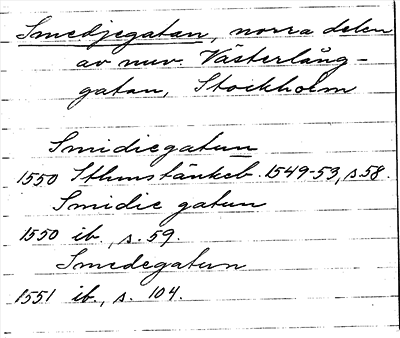 Smedjegatan, norra delen
av nuv. Västerlång-
gatan, Stockholm
Smidiegatun
1550 Sthmstänkeb. 1549-53, s. 58.
Smidie gatun
1550 ib., s. 59.
Smedegatun
1551 ib., s. 104.